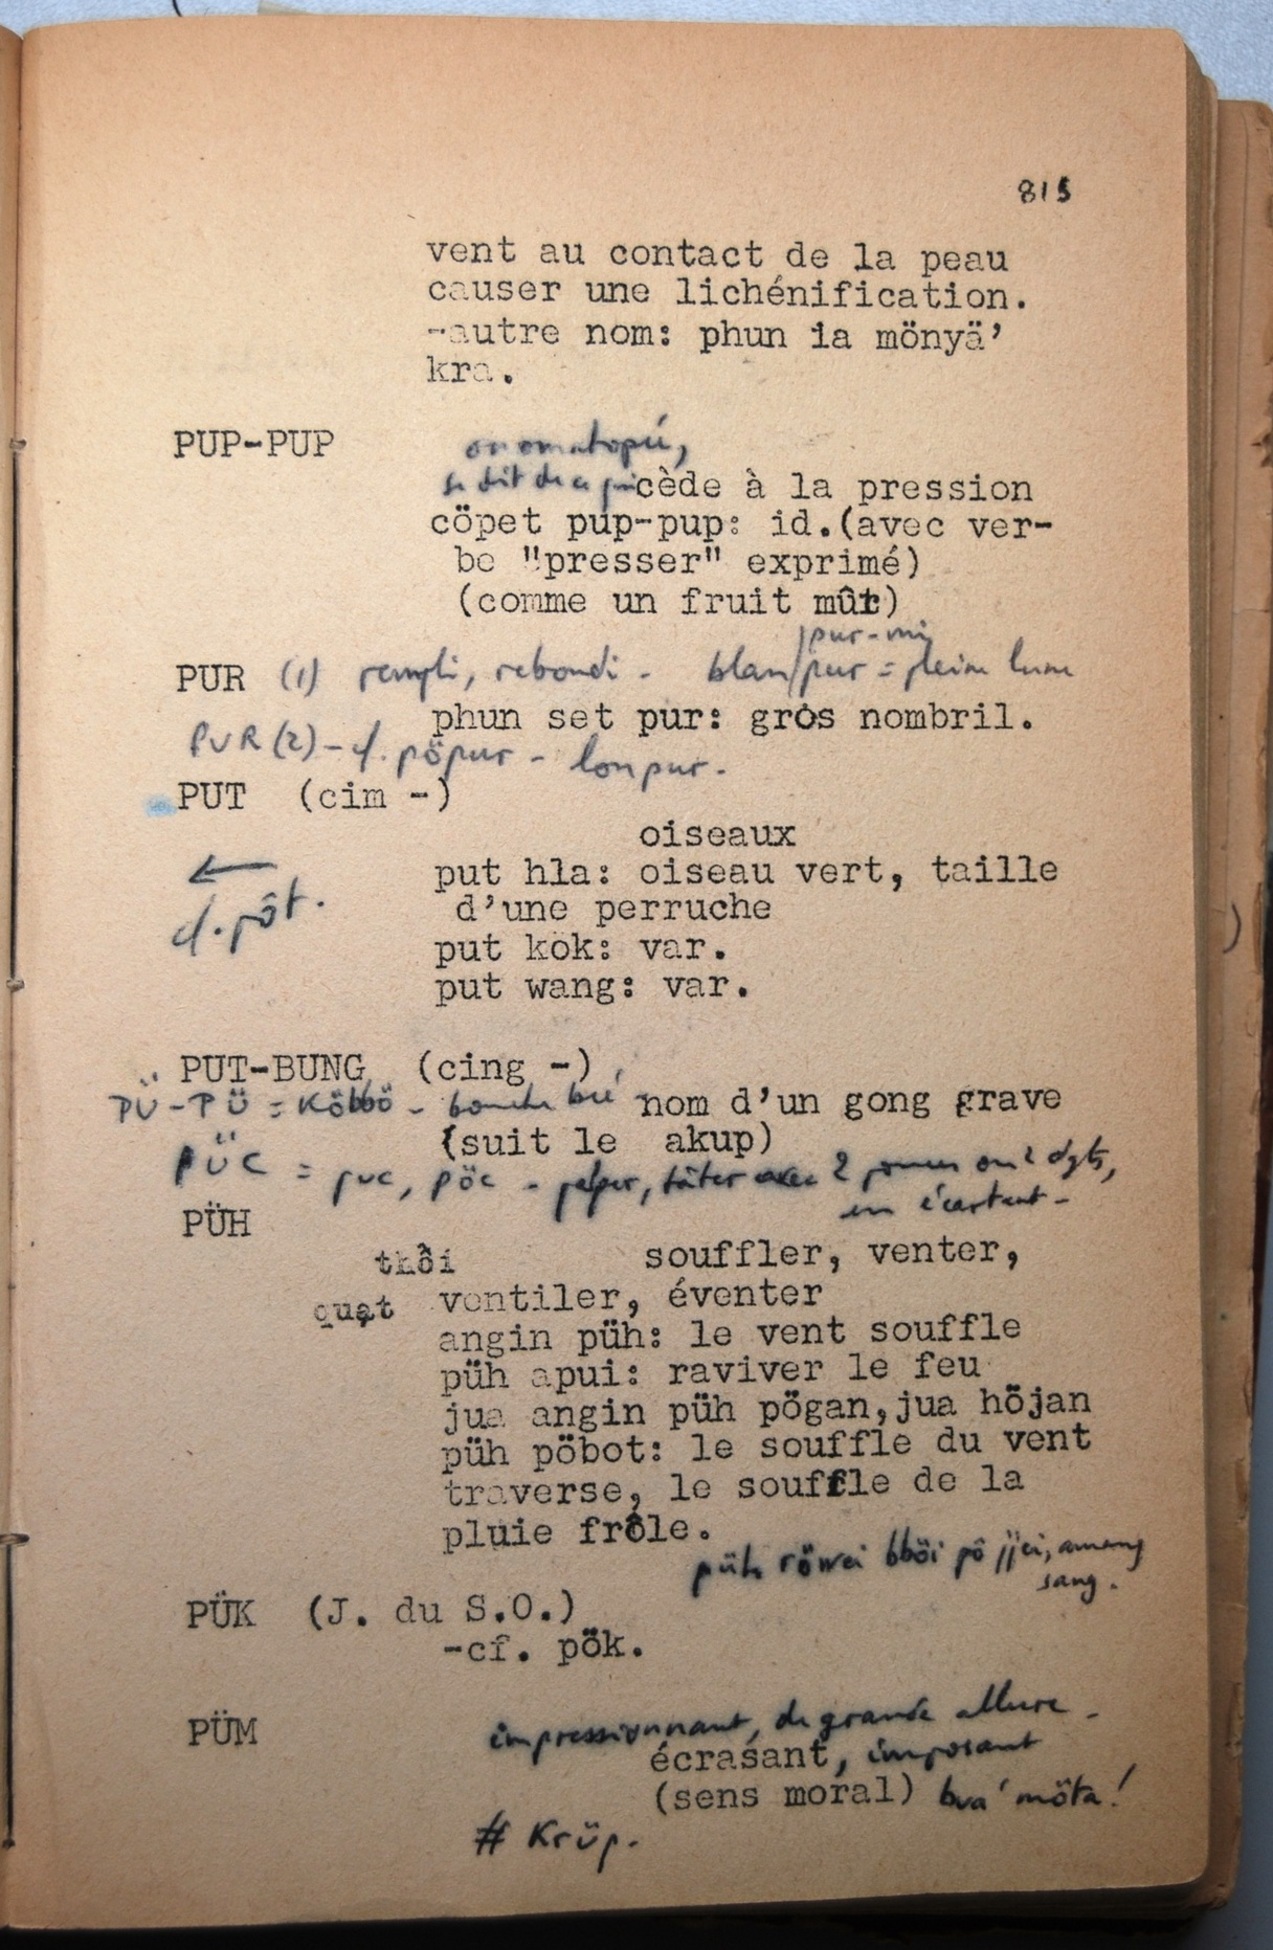 815
vent au contact de la peau
causer une lichénification.
-autre nom: phun ia mönyä'
kra.
PUP-PUP onomatopée,
se dit de ce qui cède à la pression
cöpet pup-pup: id.(avec ver-
be "presser" exprimé)
(comme un fruit mûr)
pur-
PUR (1) rempli, rebondi - blan/pur = pleine lune
phun set pur: gros nombril.
PUR (2) - cf. pöpur - lonpur.
PUT (cim -)
oiseaux
← put hla: oiseau vert, taille
cf. pôt. d'une perruche
put kok: var.
put wang: var.
PUT-BUNG (cing -)
PÜ-PÜ = Köbbö - bouche bée
nom d'un gong grave
(suit le akup)
PÜC = puc, pöc - palper, tâter avec 2 pouces ou 2 dgts,
en écartant -
PÜH
thôi souffler, venter,
quạt ventiler, éventer
angin püh: le vent souffle
püh apui: raviver le feu
jua angin püh pögan,jua höjan
püh pöbot: le souffle du vent
traverse, le souffle de la
pluie frôle.
püh röwei bböi pô jjei, amang
sang.
PÜK (J. du S.O.)
-cf. pök.
PÜM impressionnant, de grande allure -
écrasant, imposant
(sens moral) bua' möta!
# Krüp.